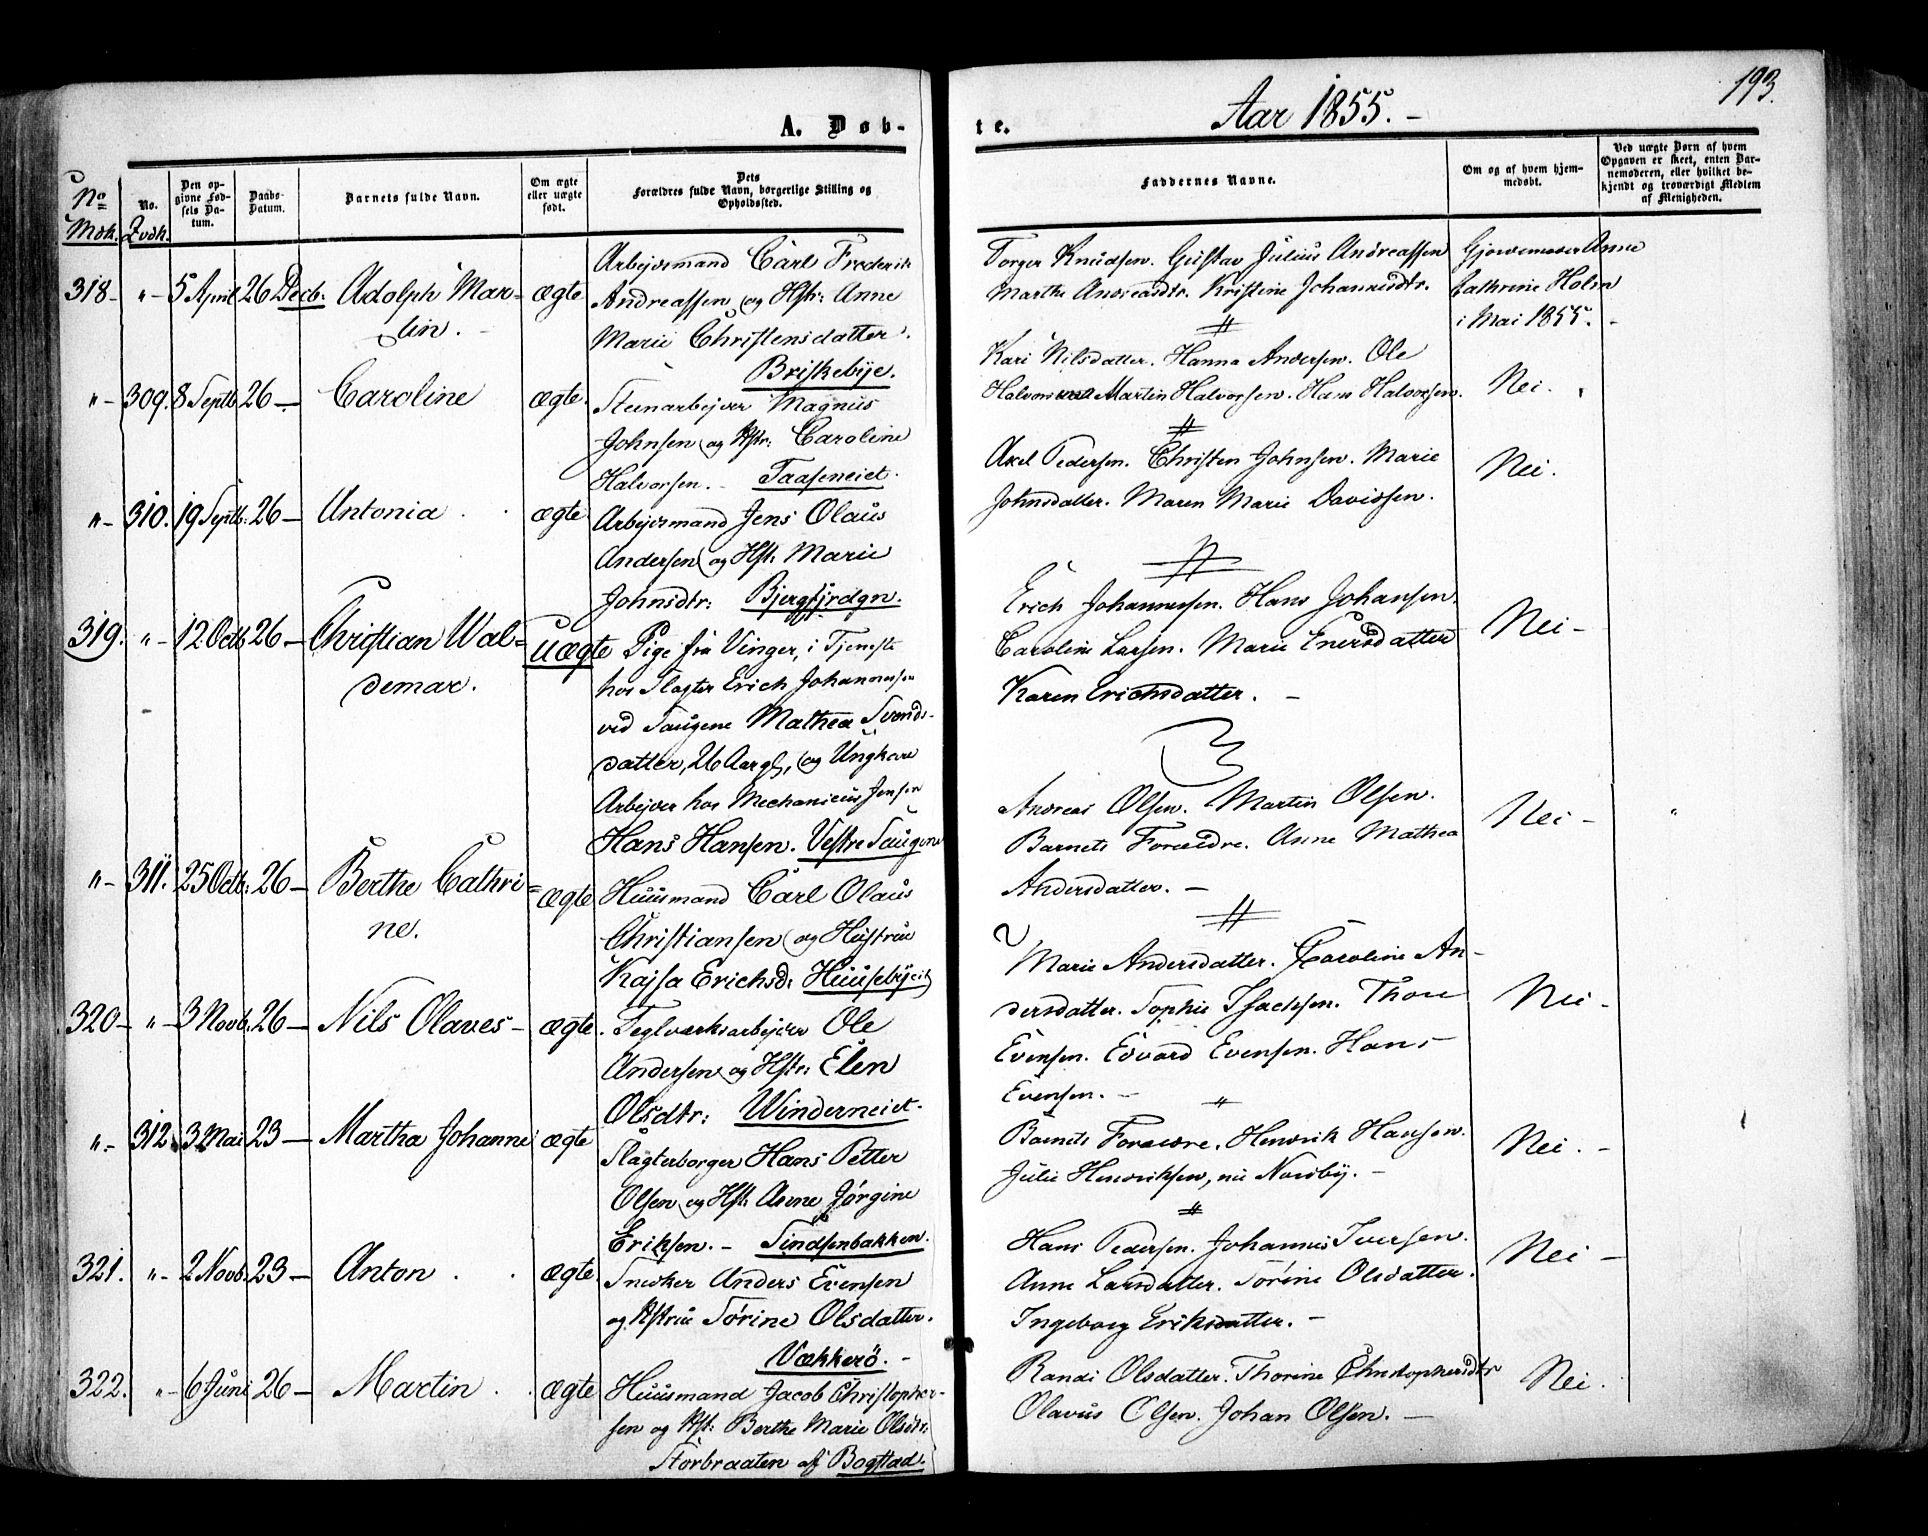 193.
Aar 1855. –
A. Døb-
te.
No Mdk.
No. Qvdk.
Den opgivne Fødsels Datum.
Daabs-Datum.
Barnets fulde Navn.
Om ægte eller uægte født.
Dets Forældres fulde Navn, borgerlige Stilling og Opholdssted.
Faddernes Navne.
Om og af hvem hjemmedøbt.
Ved uægte Børn af hvem Opgaven er skeet, enten Barnemoderen, eller hvilket bekjendt og troværdigt Medlem af Menigheden.
318 – " – 5 April 26 Decb: Adolph Mar-
tin. – ægte
Arbejdsmand Carl Frederik
Andreassen og Hstr: Anne
Marie Christensdatter.
Briskebÿe.
Torger Knudsen. Gustav Julius Andreassen
Marthe Andreasdtr. Kristine Johannesdtr.
Gjordemoder Anne
Cathrine Holm
i Mai 1855.
" – 309. 8 Septb 26 – Caroline ægte.
Steenarbejder Magnus
Johnsen og Hstr: Caroline
Halvorsen. – Taaseneiet.
Kari Nilsdatter. Hanna Andersen. Ole
Halvorsen Martin Halvorsen. Hans Halvorsen.
Nei.
" – 310. 19 Septb: 26 – Antonia ægte
Arbejdsmand Jens Olaus
Andersen og Hst: Marie
Johnsdtr: Bjergfjrdgn.
Axel Pedersen. Christen Johnsen. Marie
Johnsdatter. Maren Marie Davidsen.
Nei.
319. " – 12 Octb 26 – Christian Wal-
demar. uægte
Pige fra Vinger, i Tjeneste
hos Slagter Erich Johannessen
ved Saugene Mathea Svends-
datter, 26 Aar gl, og Ungkarl
Arbejder hos Mechanicus Jensen
Hans Hansen. Vestre Saugene
Erich Johannessen. Hans Johansen.
Caroline Larsen. Marie Enersdatter
Karen Erichsdatter. –
Nei –
" – 311. 25 Octb: 26 – Berthe Cathri-
ne. ægte
Huusmand Carl Olaus
Christiansen og Hustrue
Kajsa Erichsd: Huusebÿeit
Andreas Olsen. Martin Olsen.
Barnets Forældre. Anne Mathea
Andersdatter. –
Nei –
320 – " – 3 Novb. 26 – Nils Olaves – ægte.
Teglværksarbejder Ole
Andersen og Hstr: Elen
Olsdtr: Winderneiet.
Marie Andersdatter. Caroline An-
dersdatter. Sophie Isachsen. Thore
Evensen. Edvard Evensen. Hans
Evensen. –
Nei –
" – 312. 3 Mai 23 – Martha Johanne ægte
Slagterborger Hans Petter
Olsen og Hst: Anne Jørgine
Eriksen. – Sindsenbakken.
Barnets Forældre. Hendrik Hansen.
Julie Hendriksen, née Nordbÿ. –
Nei. –
321. " – 2 Novb. 23 – Anton ægte.
Snedker Anders Evensen
og Hstrue Sørine Olsdatter.
Vækkerö. –
Hans Pedersen. Johannes Iversen.
Anne Larsdatter. Sørine Olsdatter.
Ingeborg Eriksdatter. –
Nei –
322. " – 6 Juni 26 – Martin ægte
Huusmand Jacob Christopher-
sen og Hst: Berthe Marie Olsdtr:
Storbraaten af Bogstad.
Randi Olsdatter. Thorine Christophersdtr
Olavus Olsen. Johan Olsen. –
Nei.